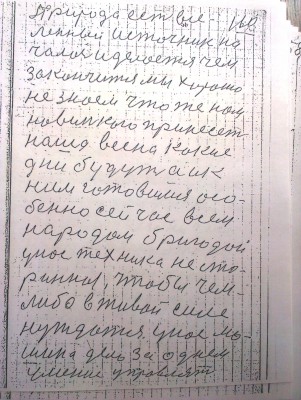 Природа естьве- 160
ленный источник на
чалои делается чем
закончится мы хорошо
не знаем что же нам
нового принесет
наша весна какие
дни будут а мы к
ним готовился осо-
бенно сейчас всем
народом бригодой
унас техника не ста-
ринны, чтобы чем-
либо в живой силе
нуждатся, унас ма-
шина дела за одне
умение управлят